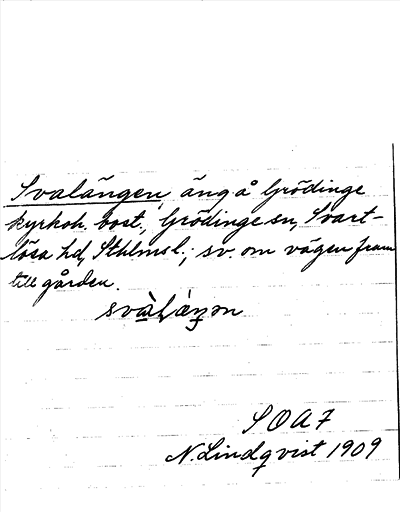 Svalängen, äng å Grödinge
kyrkoh. bost., Grödinge sn, Svart-
lösa hd, Sthlms l.; sv. om vägen fram
till gården.
SOAF
N. Lindqvist 1909